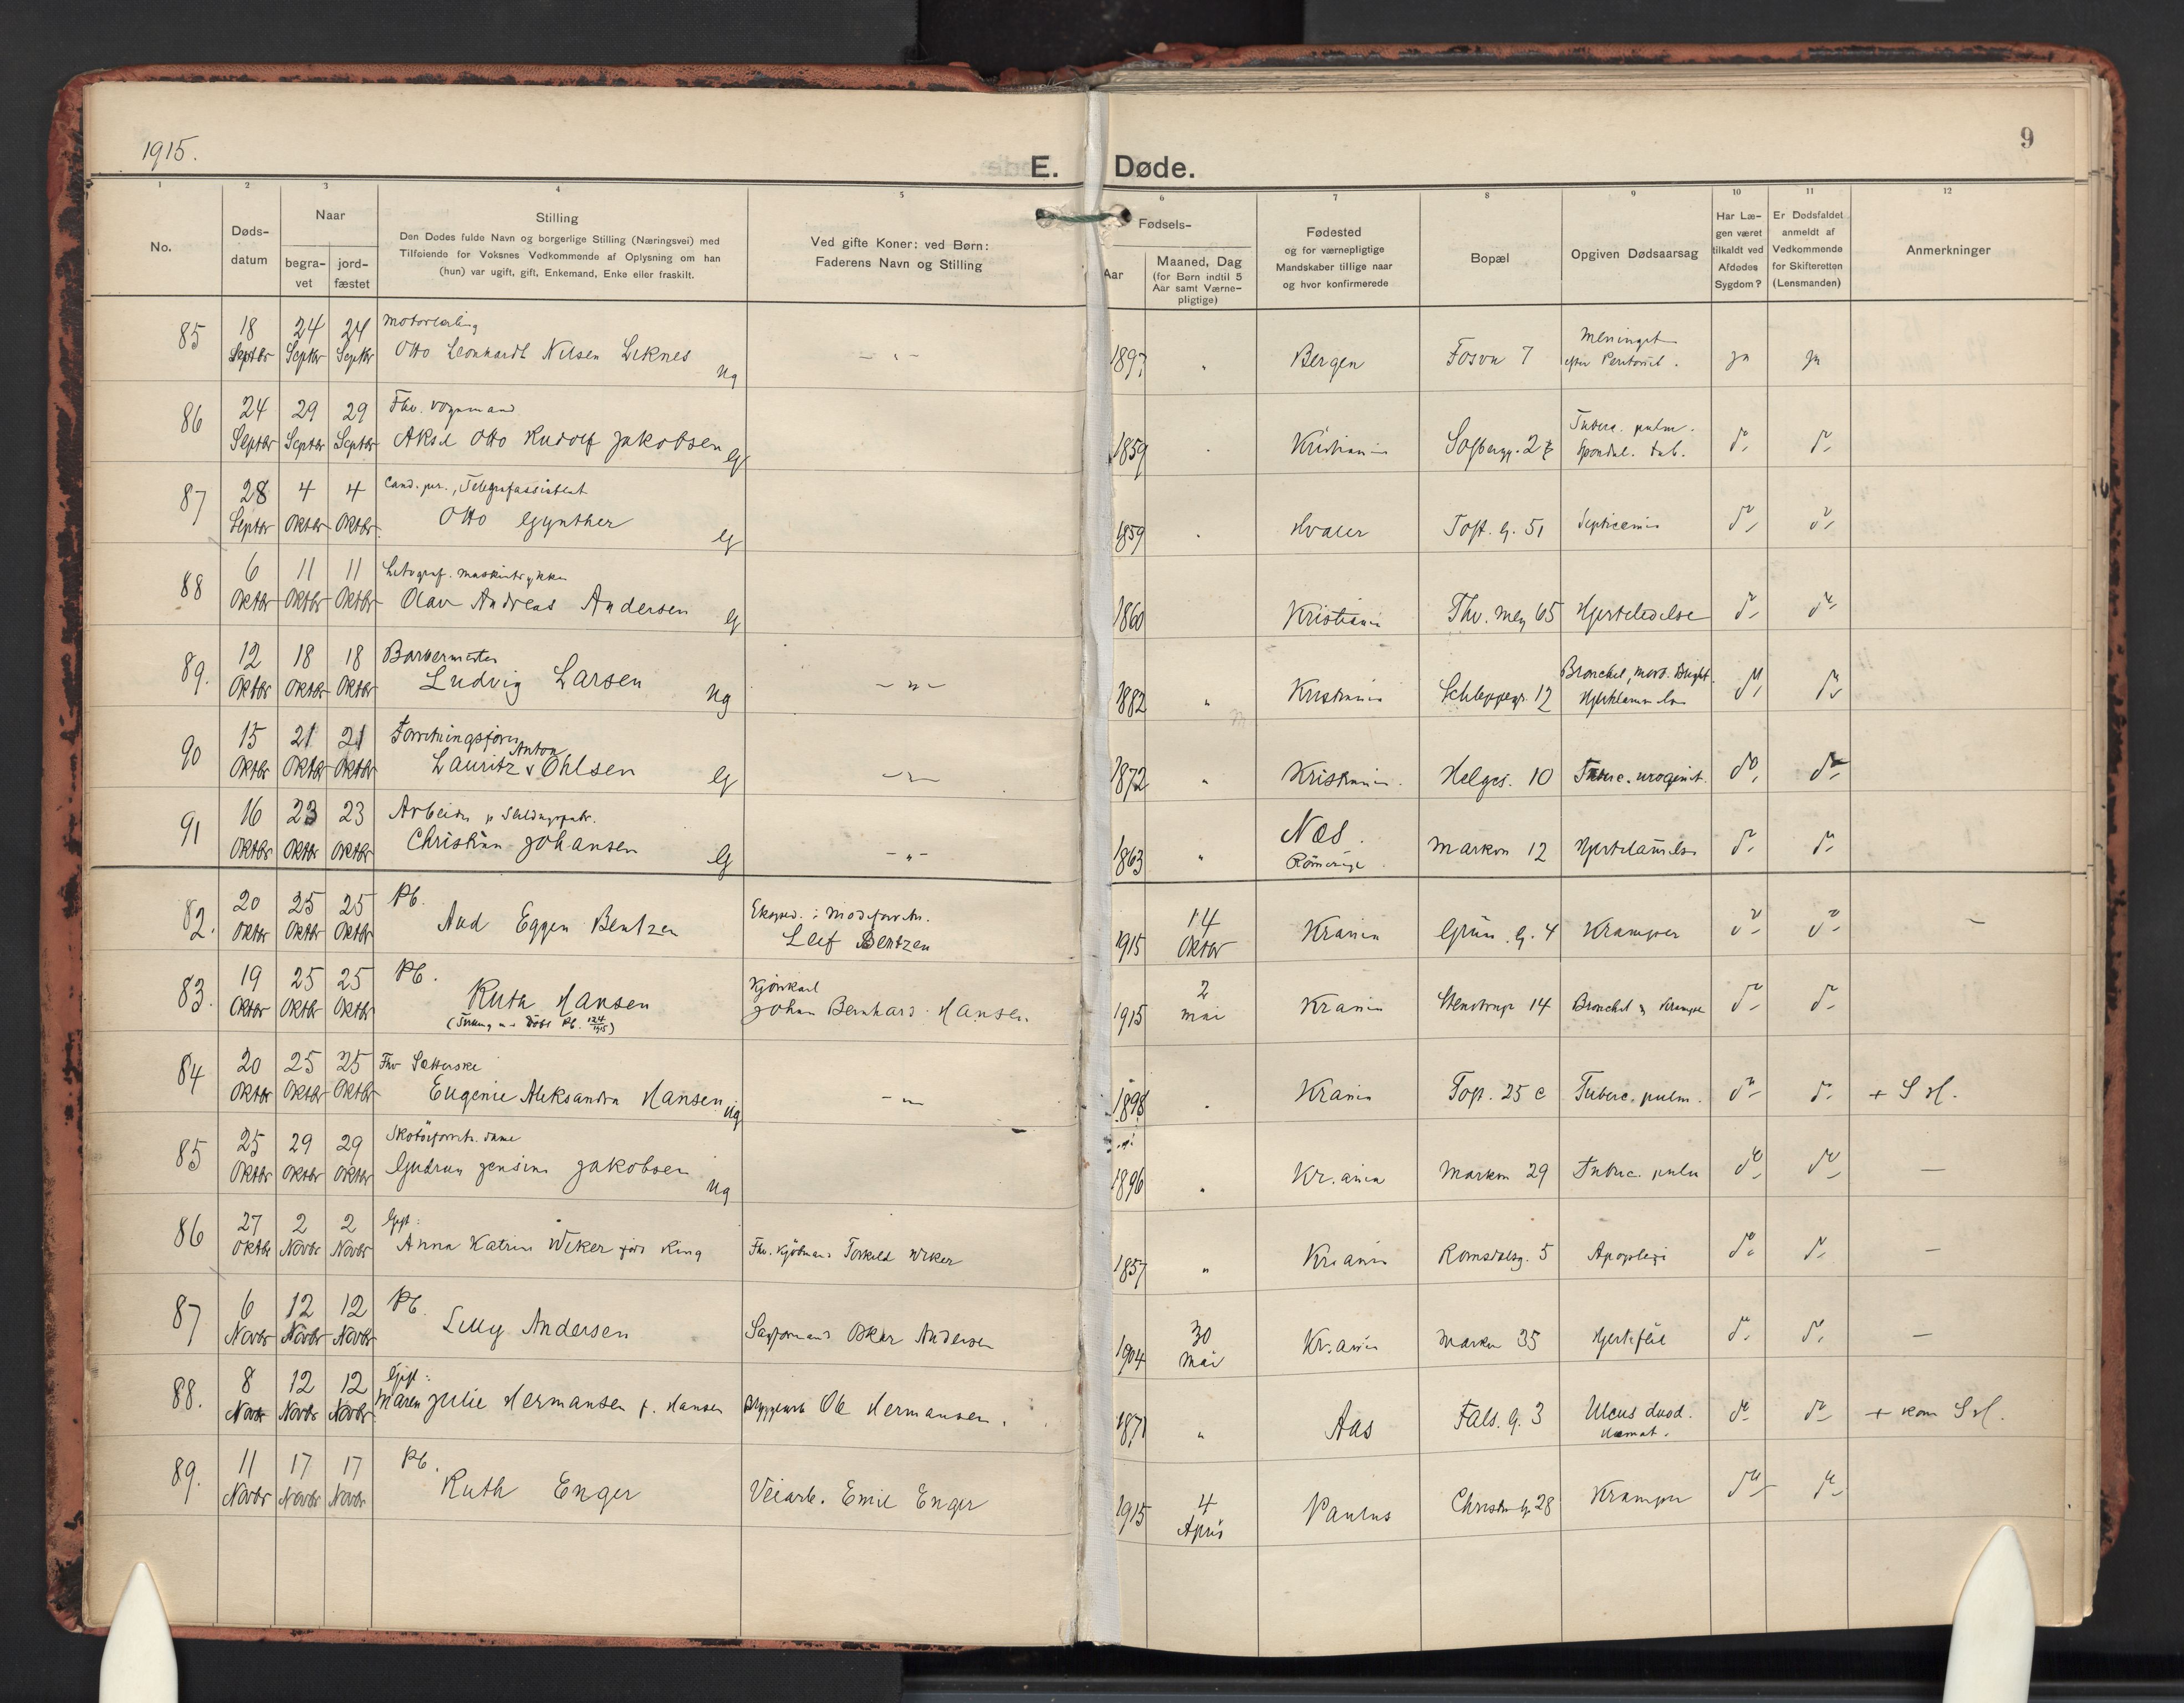 1915.
9
E. Døde.
1 2 3 4 5 6 7 8 9 10 11 12
No.
Døds-
datum
Naar
begra-
vet
jord-
fæstet
Stilling
Den Dødes fulde Navn og borgerlige Stilling (Næringsvei) med
Tilføiende for Voksnes Vedkommende af Oplysning om han
(hun) var ugift, gift, Enkemand, Enke eller fraskilt.
Ved gifte Koner: ved Børn:
Faderens Navn og Stilling
Fødsels-
Aar
Maaned, Dag
(for Børn indtil 5
Aar samt Værne-
pligtige)
Fødested
og for værnepligtige
Mandskaber tillige naar
og hvor konfirmerede
Bopæl
Opgiven Dødsaarsag
Har Læ-
gen været
tilkaldt ved
Afdødes
Sygdom?
Er Dødsfaldet
anmeldt af
Vedkommende
for Skifteretten
(Lensmanden)
Anmerkninger
85 18 Septbr 24 Septbr 24 Septbr
Otto Leonhardt Nilsen Liknes Ug
- " -
1897 " Bergen Fosvn 7 Meningit ja ja
86 24 Septbr 29 Septbr 29 Septbr
Fhv. vognmand
Aksel Otto Rudolf Jakobsen G
1859 " Kristiania 27 Tuberc. pulm. do do
87 28 Septbr 4 Oktbr 4 Oktbr
Cand. jur., Telegrafassistent
Otto Gynther G
1859 " Hvaler Toft. G. 51 Septicemi do do
88 6 Oktbr 11 Oktbr 11 Oktbr
Litograf. maskintrykker
Olav Andreas Andersen G
1860 Kristiania Thv. Mey 65 Hjertelidelse do do
89. 12 Oktbr 18 Oktbr 18 Oktbr
Barbermester
Ludvig Larsen Ug
- " -
1882 " Kristiania Schleppegr. 12 Bronchit, morb. Bright.
Hjertelammelse do do
90 15 Oktbr 21 Oktbr 21 Oktbr
Forretningsfører
Lauritz Anton Ohlsen G
- " -
1872 " Kristiania. Helges. 10 Tuberc. urogenit. do do
91 16 Oktbr 23 Oktbr 23 Oktbr
Arbeider
Christian Johansen G
- " -
1863 " Nes. Romerige Markvn 12 Hjertelammelse do do
82. 20 Oktbr 25 Oktbr 25 Oktbr
Pb.
Aud Eggen Bentzen
Eksped. i Modeforretn.
Leif Bentzen
1915 14 Oktbr Krania Grün. G. 4 Kramper do do -
83. 19 Oktbr 25 Oktbr 25 Oktbr
Pb.
Ruth Hansen
Kjørekarl
Johan Bernhard Hansen
1915 2 mai Krania Stenstrupg 14 Bronchit og Kramper do do
84 20 Oktbr 25 Oktbr 25 Oktbr
Fhv Sætterske
Eugenie Aleksandra Hansen Ug
- " -
1898 " Krania Toft. 25 c Tuberc. pulm. do do + S H.
85 25 Oktbr 29 Oktbr 29 Oktbr
Skotøiforretn. dame
Gudrun Jensine Jakobsen Ug
1896 " Kr.ania Markvn 29 Tuberc. pulm do do -
86 27 Oktbr 2 Novbr 2 Novbr
Gift:
Anna Katrine Wiker født Ring
Fhv. Kjøbmand Torkild Wiker
1857 " Kr.ania Romsdalsg. 5 Apopleksi do do -
87 6 Novbr 12 Novbr 12 Novbr
Pb.
Lilly Andersen
Oskar Andersen
1904 30 Mai Kr.ania Markvn 35 Hjertefeil do do -
88. 8 Novbr 12 Novbr 12 Novbr
Gift:
Maren Julie Hermansen f. Hansen
Bryggearb Ole Hermansen.
1871 " Aas Fals. G. 3 Ulcus duod.
Hæmat. do do + kom S H.
89. 11 Novbr 17 Novbr 17 Novbr
Pb.
Ruth Enger
Veiarb. Emil Enger
1915 4 April Paulus 28 Kramper do do